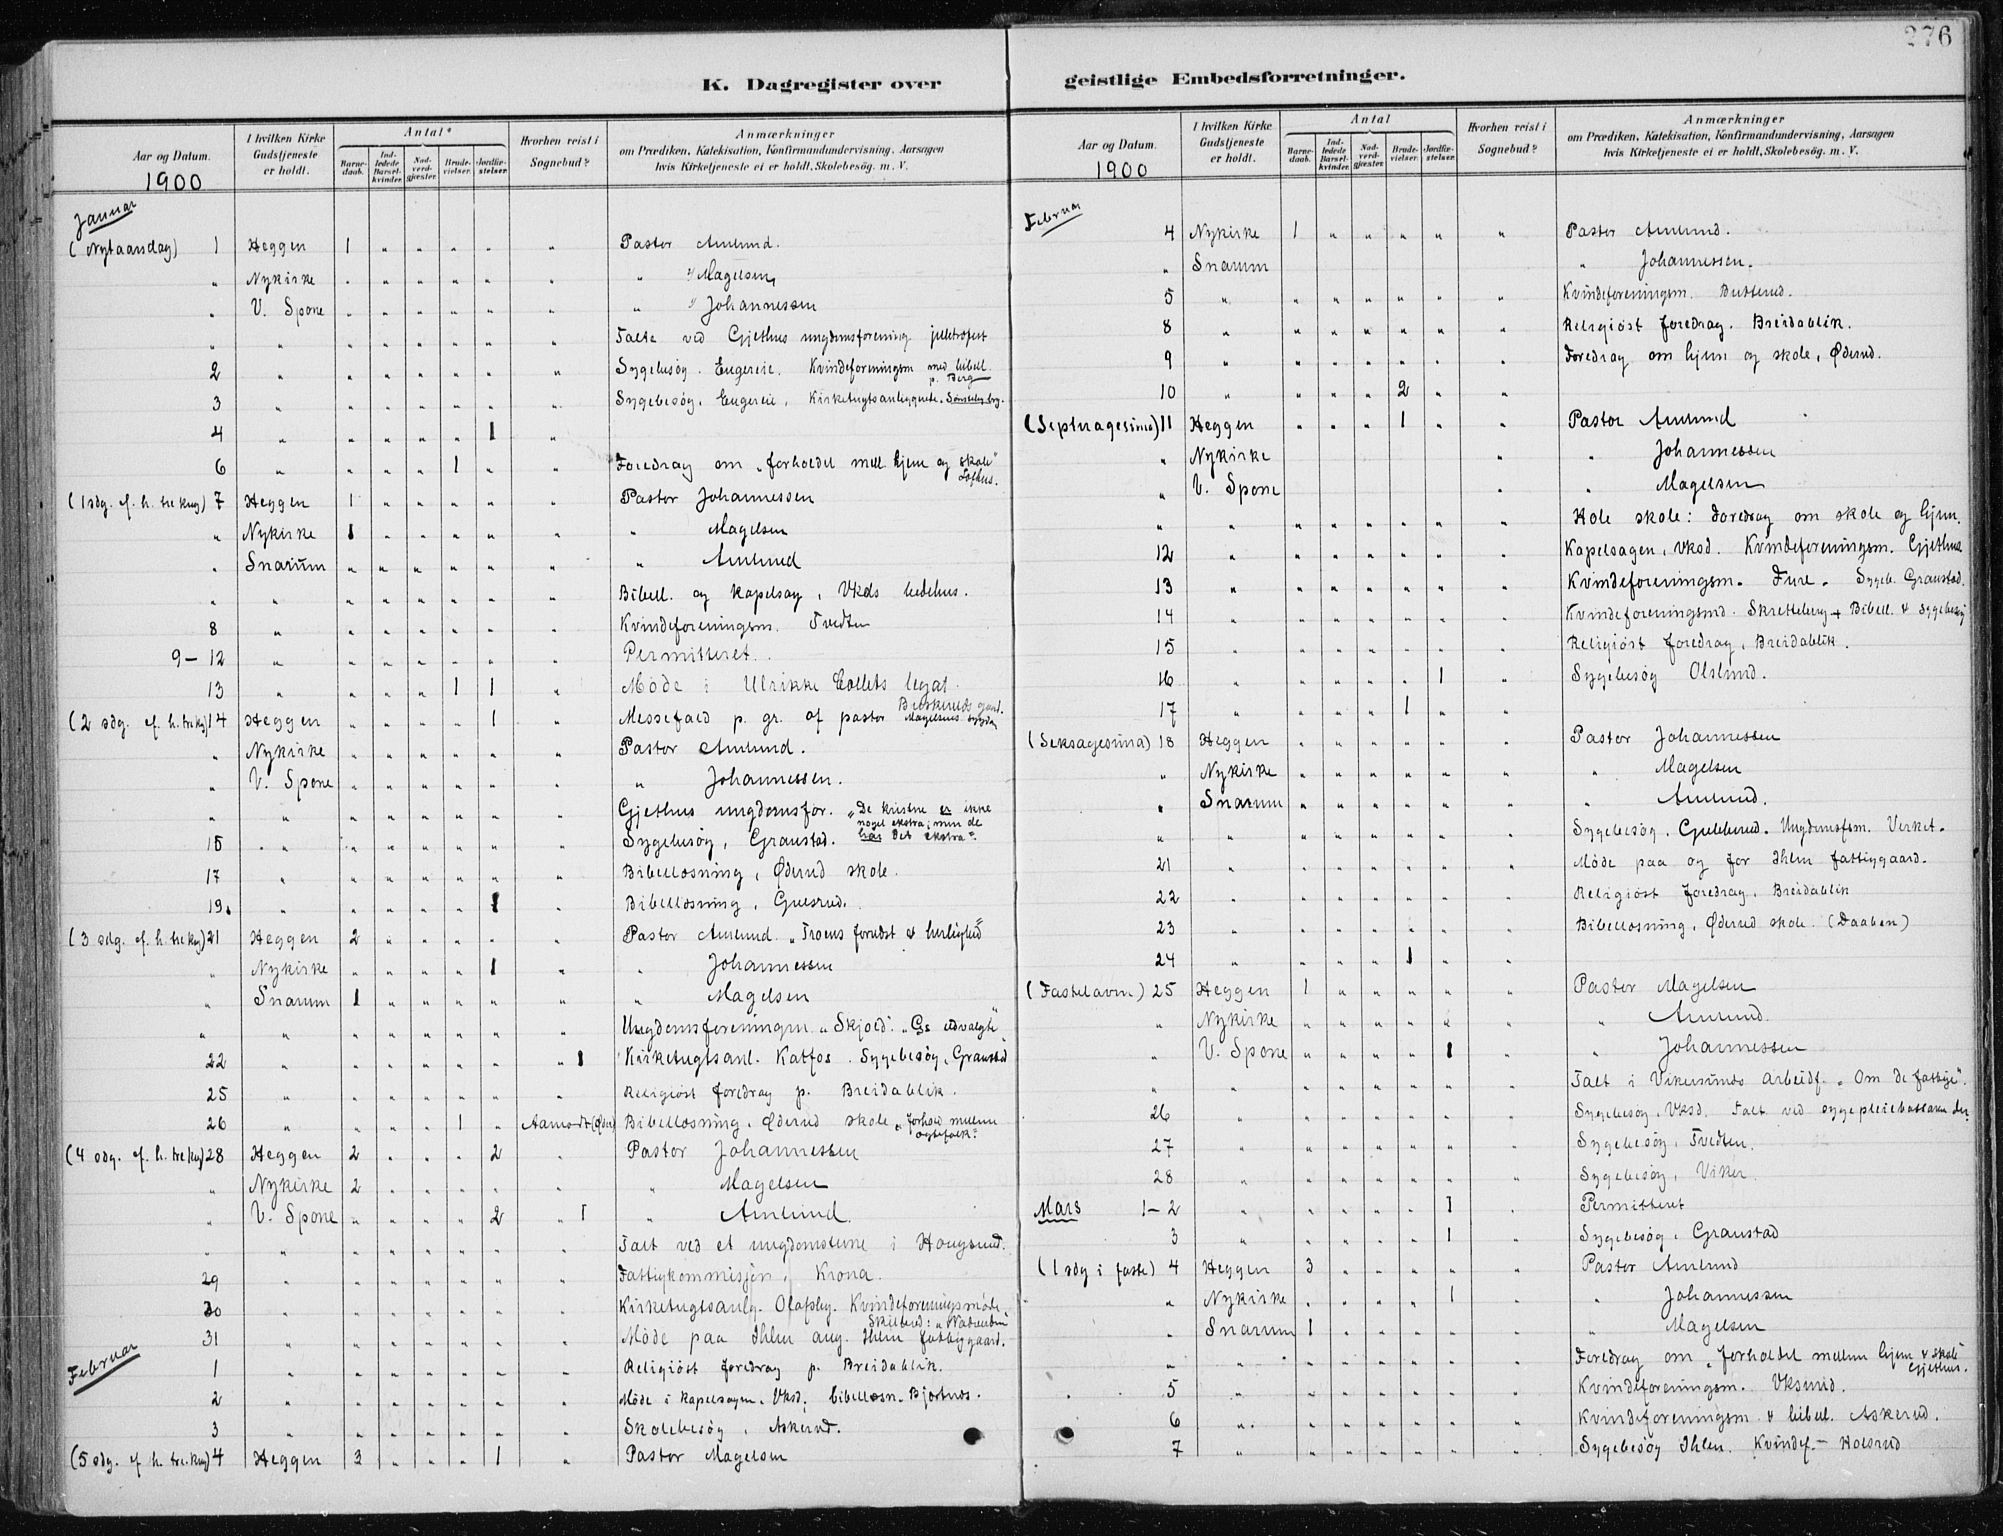 276
K. Dagregister over
Aar og Datum.
I hvilken Kirke Gudstjeneste er holdt.
Antal*
Barne-daab.
Ind-ledede Barsel-kvinder.
Nad-verd-gjester.
Brude-vielser.
Jordfæ-stelser.
Hvorhen reist i Sognebud?
Anmærkninger
om Prædiken, Katekisation, Konfirmandundervisning, Aarsagen
hvis Kirketjeneste ei er holdt, Skolebesøg. m. V.
1900
Januar
(Nytaarsdag) 1 Heggen 1 " " " " " Pastor Amlund.
" Nykirke " " " " " " " Magelsen,
" V. Spone " " " " " " " Johannessen
" " " " " " " " Talte ved Gjethus ungdomsforening juletræfest
2 " " " " " " " Sygebesøg. Engereie. Kvindeforeningsm med bibell. p. Berg
3 " " " " " " " Sygebesøg, Engereie,
4 " " " " " 1 "
6 " " " " 1 " " Foredrag om "forholdet mell. hjem og skole" Lofthus.
(1 sdg. ef. h. tre kng) 7 Heggen 1 " " " " " Pastor Johannessen
" Nykirke 1 " " " " " " Magelsen
" Snarum " " " " " " " Amlund
" " " " " " " " Bibell. og kapelsag, Vkds bedehus.
8 " " " " " " " Kvindeforeningsm. Tvedten
9–12 " " " " " " " Permitteret.
13 " " " " 1 1 " Møde i Ulrikke Collets legat. Buskeruds gaard.
(2 sdg. ef. h. tre kg) 14 Heggen " " " " 1 " Messefald p. gr. af pastor Magelsens sygdom
" Nykirke " " " " " " Pastor Amlund.
" V. Spone " " " " " " " Johannessen.
" " " " " " " " Gjethus ungdomsfor. "De kristne er ikke noget ekstra; men de har det ekstra".
15 " " " " " " " Sygebesøg, Graustad.
17 " " " " " " " Bibellæsning, Øderud skole.
19. " " " " " 1 " Bibellæsning, Gulsrud.
(3 sdg. ef. h. tre kg) 21 Heggen 2 " " " " " Pastor Amlund. "Troens forudst & herlighed"
" Nykirke " " " " 1 " " Johannessen
" Snarum 1 " " " " " " Magelsen
" " " " " " " " Ungdomsforeningen "Skjold". "Gs udvalgte"
22 " " " " " " " 1 Kirketugtsanl. Katfos. Sygebesøg, Graustad
25 " " " " " " " Religiøst foredrag p. Breidablik.
26 " " " " 1 " Aamodt (Øder) Bibellæsning, Øderud skole, "forhold mellem ægtefolk".
(4 sdg. ef. h. tre kg) 28 Heggen 2 " " " 2 " Pastor Johannessen
" Nykirke 2 " " " " " " Magelsen
" V. Spone " " " " 2 " 1 " Amlund.
" " " " " " " " Talt ved et ungdomsstevne i Hougsund.
29 " " " " " " " Fattigkommisjon, Krona.
30 " " " " " " " Kirketugtsanlg. Olafsby. Kvindeforeningsmøde, Skilbred:
31 " " " " " " " Møde paa Ihlen ang. Ihlen fattiggaard.
Februar
1 " " " " " " " Religiøst foredrag p. Breidablik.
2 " " " " " " " Møde i kapelsagen, Vksd, bibellæsn. Bjørtnes.
3 " " " " " " " Skolebesøg, Askerud.
(5 sdg. ef h. tre.kng) 4 Heggen 3 " " " 1 " Pastor Magelsen
geistlige Embedsforretninger.
Aar og Datum.
I hvilken Kirke Gudstjeneste er holdt.
Antal
Barne-daab.
Ind-ledede Barsel-kvinder.
Nad-verd-gjester.
Brude-vielser.
Jordfæ-stelser.
Hvorhen reist i Sognebud?
Anmærkninger
om Prædiken, Katekisation, Konfirmandundervisning, Aarsagen
hvis Kirketjeneste ei er holdt, Skolebesøg. m. V.
1900
Februar
4 Nykirke 1 " " " " " Pastor Amlund.
" Snarum " Johannessen.
5 " " " " " " " Kvindeforeningsm. Butterud.
8 " " " " " " " Religiøst foredrag. Breidablik.
9 " " " " " " " Foredrag om hjem og skole, Øderud.
10 " " " " 2 " "
(Septuagesima) 11 Heggen " " " 1 " " Pastor Amlund
" Nykirke " " Johannessen
" V. Spone " " Magelsen
" " " " " " " " Hole skole: foredrag om skole og hjem.
12 " " " " " " " Kapelsagen, Vksd. Kvindeforeningsm. Gjethus
13 " " " " " " " Kvindeforeningsm. Fure. Sygeb. Graustad.
14 " " " " " " " Kvindeforeningsmd. Skretteberg + Bibell. & sygebesøg
15 " " " " " " " Religiøst foredrag, Breidablik.
16 " " " " " 1 " Sygebesøg Olslund.
17 " " " " 1 " "
(Seksagesima) 18 Heggen " " " " " " Pastor Johannessen
" Nykirke " " " " " " " Magelsen
" Snarum " " " " " " " Amlund.
" " " " " " " " Sygebesøg, Gubberud. Ungdomsfsm. Verket.
21 " " " " " " " Møde paa og for Ihlen fattiggaard.
22 " " " " " " " Religiøst foredrag, Breidablik
23 " " " " " " " Bibellæsning, Øderud skole. (Daaben)
24 " " " " 1 " "
(Fastelavn) 25 Heggen 1 " " " " " Pastor Magelsen
" Nykirke " " " " " " " Amlund.
" V. Spone " " " " 1 " " Johannessen
" " " " " " " " Talt i Vikersunds Arbeidf. "Om de fattige".
26 " " " " " " " Sygebesøg, Vksd. Talt ved
27 " " " " " " " Sygebesøg, Tvedten.
28 " " " " " " " Sygebesøg, Viker
Mars 1–2 " " " " " 1 " Permitteret
3 " " " " " 1 " Sygebesøg, Graustad
(1 sdg i faste) 4 Heggen 3 " " " " " Pastor Amlund
" Nykirke " " " " 1 " " Johannessen
" Snarum 1 " " " " " " Magelsen
" " " " " " " " Foredrag om "forholdet mellem hjem & skole" Gjethus.
5 " " " " " " " Kvindeforeningsm. Vksund.
6 " " " " " " " Kvindeforeningsm & bibell. Askerud.
7 " " " " " " " Sygebesøg Ihlen. Kvindef.– Holsrud